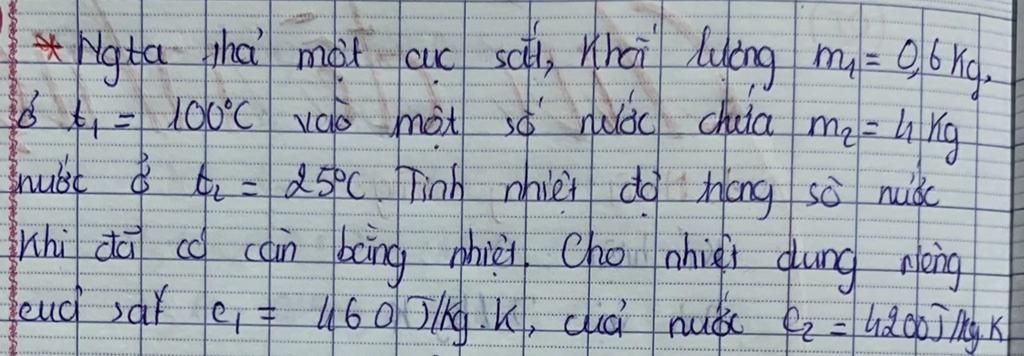 * Ngta thả một cục sắt, khối lượng m₁ = 0,6 kg,
ở t₁ = 100°C vào một số nước chứa m₂ = 4 kg
nước ở t₂ = 25°C. Tính nhiệt độ trong số nước
khi đã có cân bằng nhiệt. Cho nhiệt dung riêng
của sắt c₁ = 460 J/kg.K, của nước c₂ = 4200J/kg.K